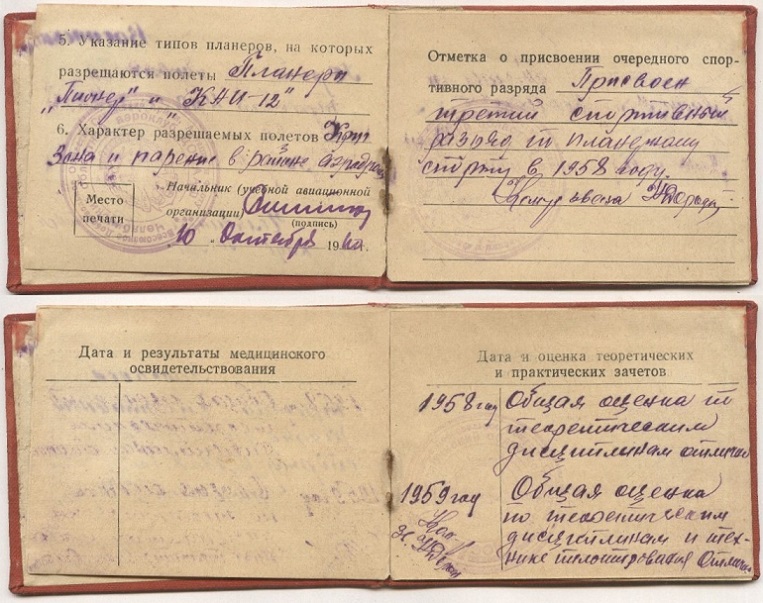 5. Указание типов планеров, на которых
разрешаются полеты Планеры
"Пионер" и КАИ-12"
6. Характер разрешаемых полетов Круг
Зона и парение в районе аэродрома
Место
печати
Начальник (учебной авиационной
организации)
(подпись)
10 " Октября 1960г.
Отметка о присвоении очередного спор-
тивного разряда Присвоен
третий спортивный
разряд по планерному
спорту в 1958 году.
Нач. звена
Дата и результаты медицинского
освидетельствования
Дата и оценка теоретических
и практических зачетов
1958 год Общая оценка по
теоретическим
дисциплинам отлично
1959 год Общая оценка
по теоретическим
дисциплинам и тех-
нике пилотирования Отлично